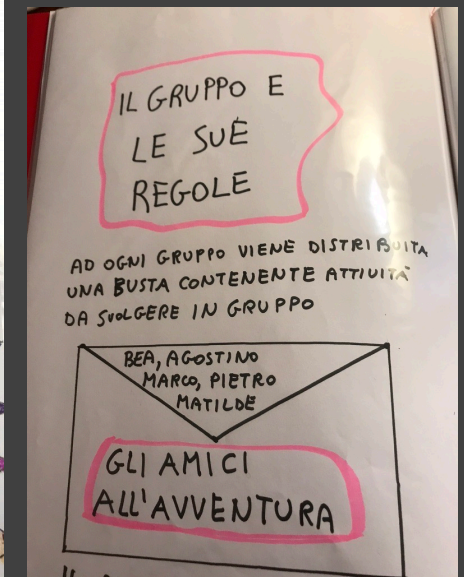 IL GRUPPO E
LE SUE
REGOLE
AD OGNI GRUPPO VIENE DISTRIBUITA
UNA BUSTA CONTENENTE ATTIVITÀ
DA SVOLGERE IN GRUPPO
BEA, AGOSTINO
MARCO, PIETRO
MATILDE
GLI AMICI
ALL'AVVENTURA